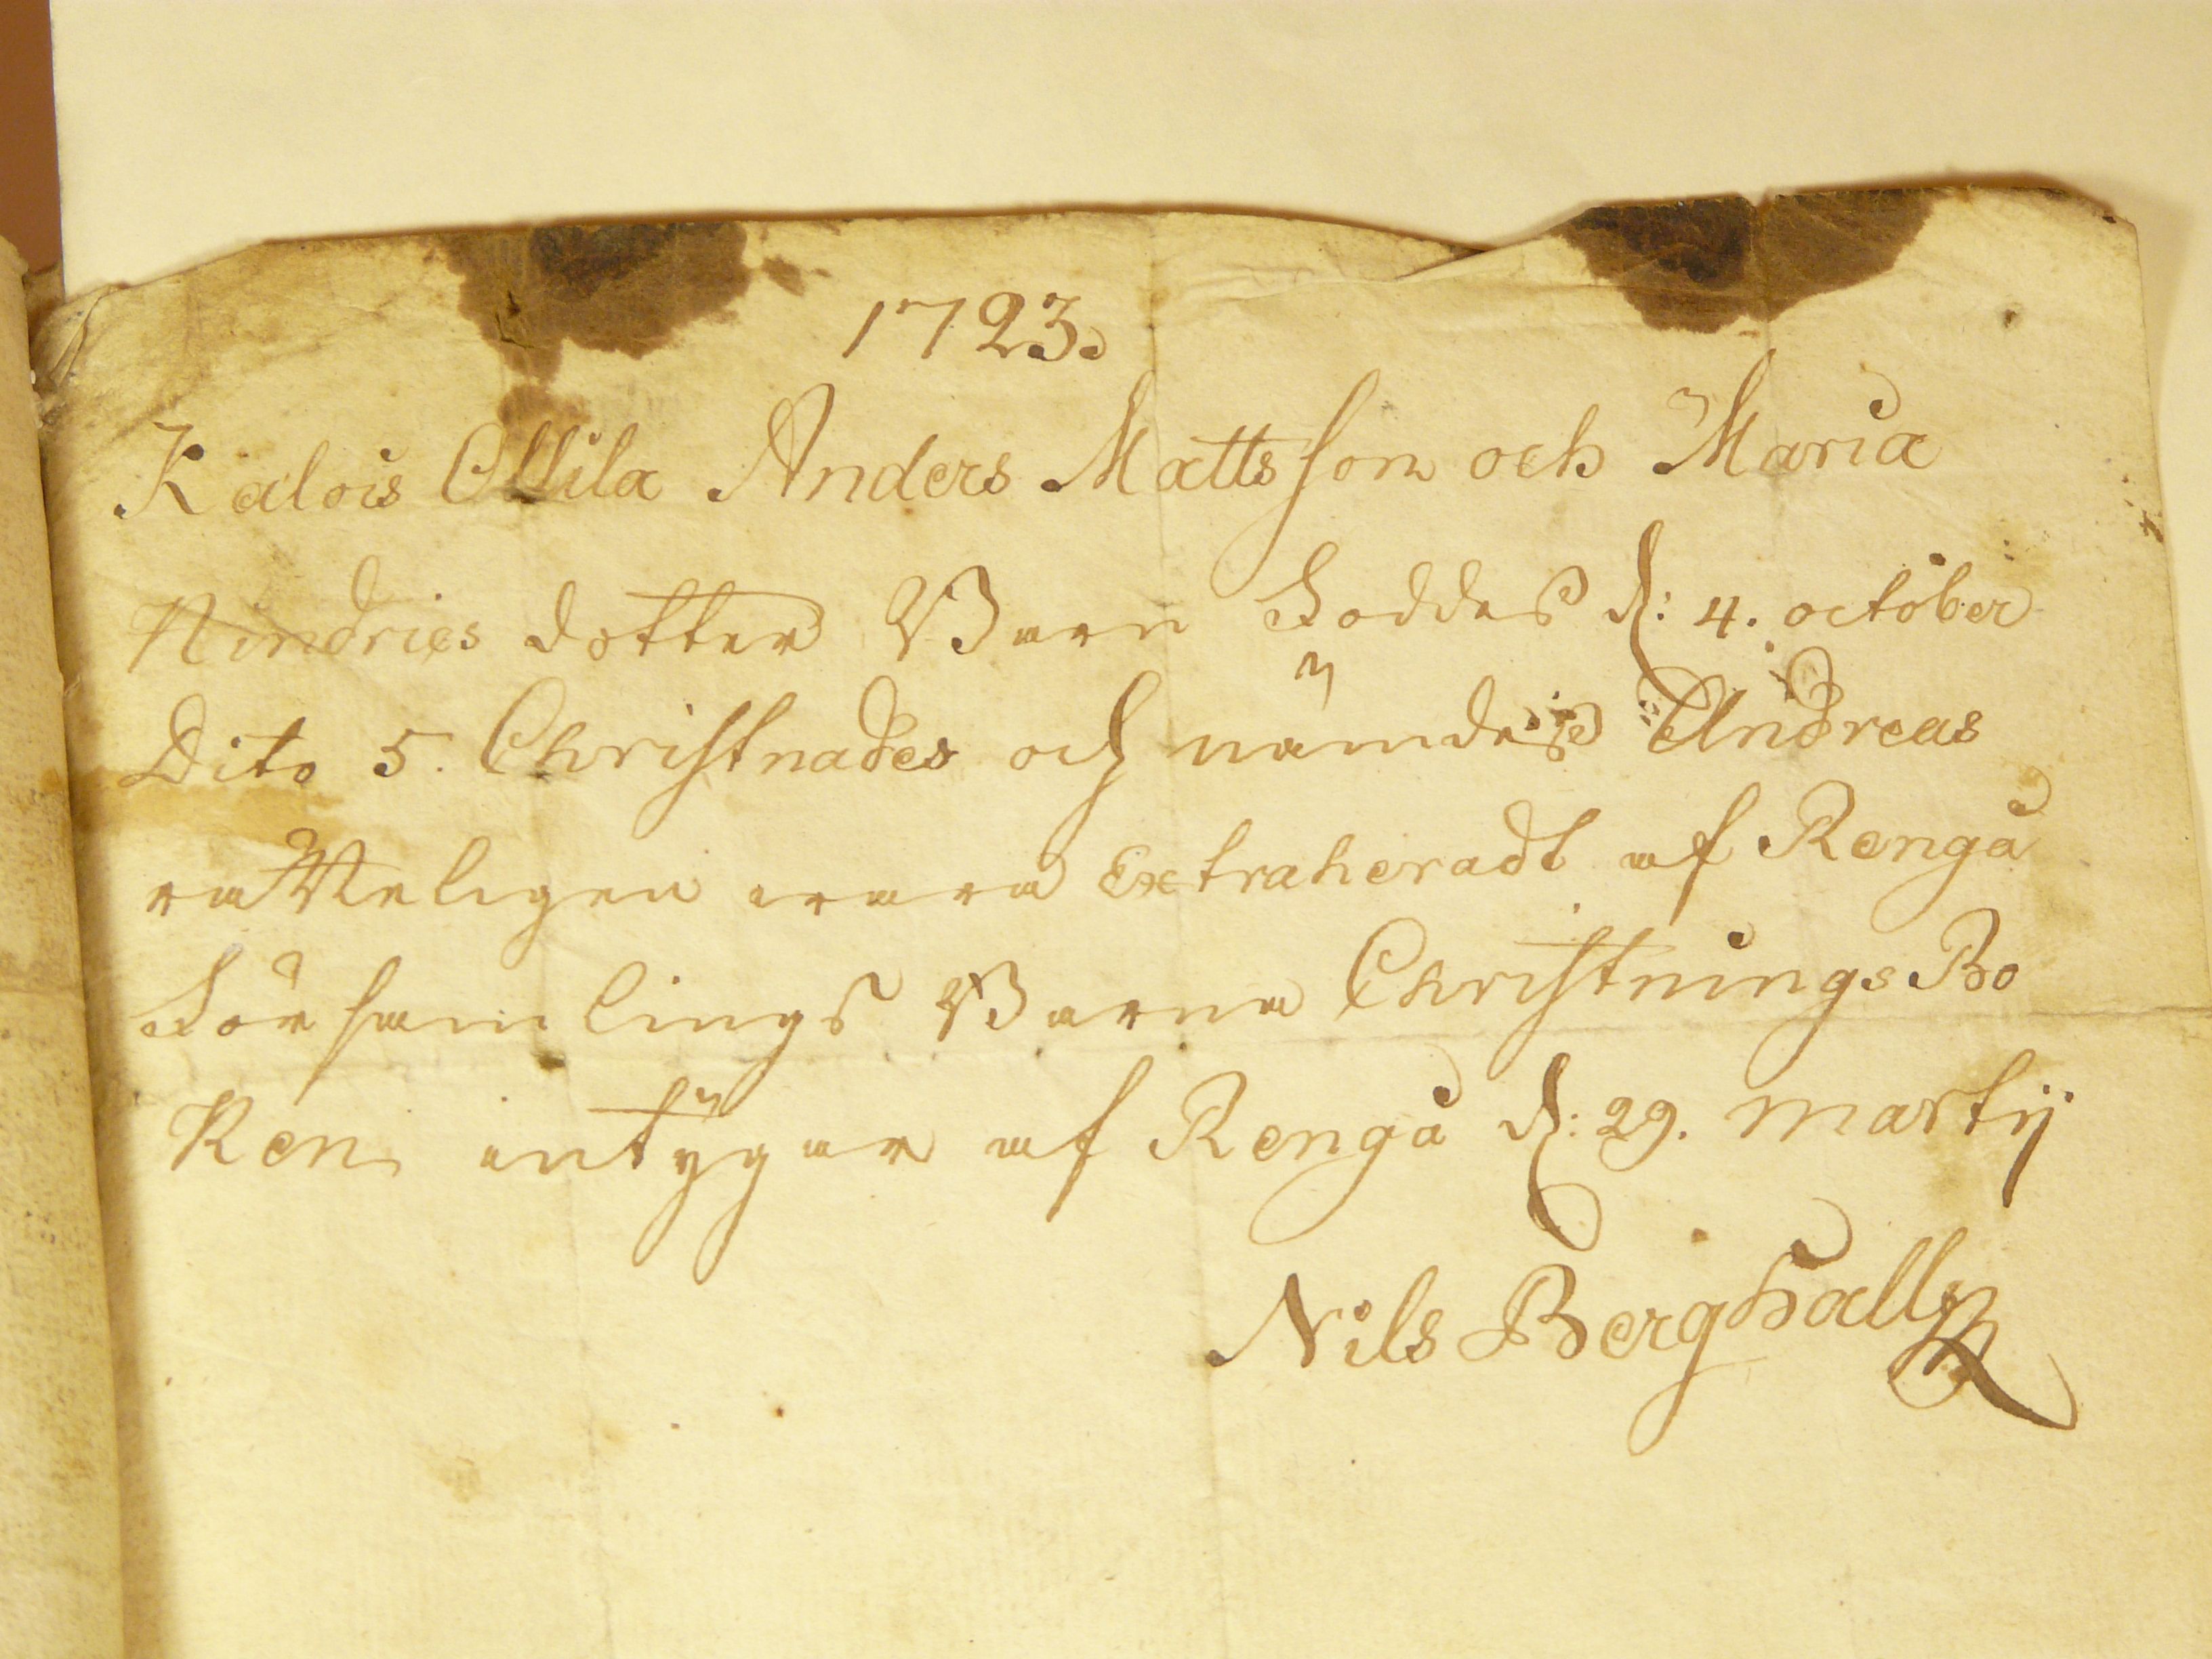 1723.
Kalois Ollila Anders Mattsson och Maria
Hindries dotter Barn Föddes d: 4. october
Dito 5. Christnades och nämdes Andreas
rätteligen vara Extraheradt af Rengå
Församlings Barna Christnings Bo
Ken intÿgar af Rengå d: 29. Martij
Nils Berghäll